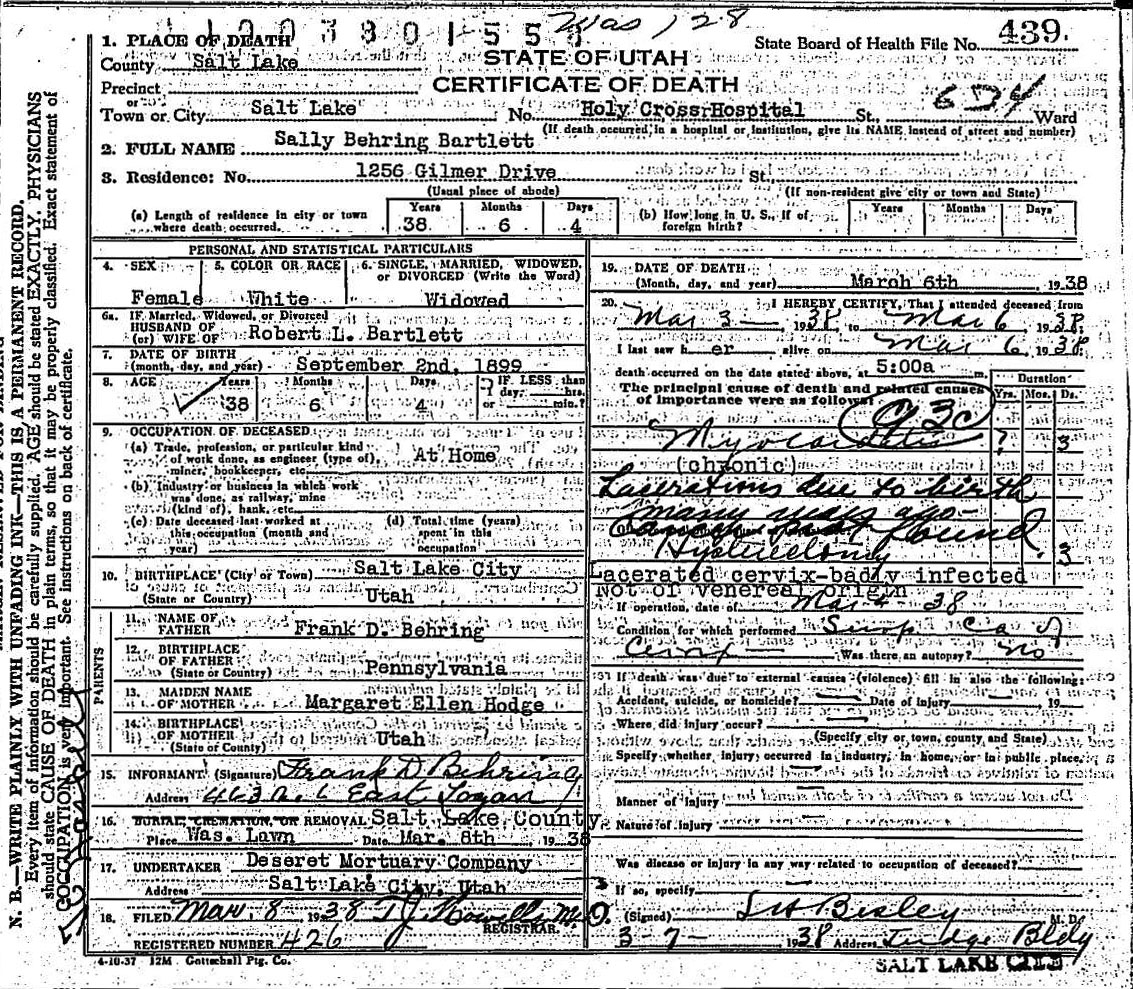 1003801554 Was 128
439.
State Board of Health File No.
1. PLACE OF DEATH
STATE OF UTAH
County Salt Lake
CERTIFICATE OF DEATH
Precinct
or
Town or City Salt Lake No. Holy Cross Hospital St., Ward
(If death occurred in a hospital or institution, give its NAME instead of street and number)
2. FULL NAME Sally Behring Bartlett
3. Residence: No. 1256 Gilmer Drive St.
(Usual place of abode) (If non-resident give city or town and State)
(a) Length of residence in city or town where death occurred. Years 38 Months 6 Days 4
(b) How long in U. S., if of foreign birth? Years Months Days
PERSONAL AND STATISTICAL PARTICULARS
4. SEX Female
5. COLOR OR RACE White
6. SINGLE, MARRIED, WIDOWED, or DIVORCED (Write the Word) Widowed
6a. If Married, Widowed, or Divorced
HUSBAND OF
(or) WIFE OF Robert L. Bartlett
7. DATE OF BIRTH
(month, day, and year) September 2nd, 1899
8. AGE Years 38 Months 6 Days 4 IF LESS than 1 day, hrs. or min.?
9. OCCUPATION OF DECEASED
(a) Trade, profession, or particular kind of work done, as engineer (type of), miner, bookkeeper, etc. At Home
(b) Industry or business in which work was done, as railway, mine (kind of), bank, etc.
(c) Date deceased last worked at this occupation (month and year)
(d) Total time (years) spent in this occupation
10. BIRTHPLACE (City or Town) Salt Lake City
(State or Country) Utah
PARENTS
11. NAME OF FATHER Frank D. Behring
12. BIRTHPLACE OF FATHER
(State or Country) Pennsylvania
13. MAIDEN NAME OF MOTHER Margaret Ellen Hodge
14. BIRTHPLACE OF MOTHER
(State or Country) Utah
15. INFORMANT (Signature) Frank D Behring
Address East Logan
16. BURIAL, CREMATION, OR REMOVAL Salt Lake County
Place Was. Lawn Date Mar. 8th, 1938
17. UNDERTAKER Deseret Mortuary Company
Address Salt Lake City, Utah
18. FILED Mar. 8 1938 T J Howells M.D.
REGISTRAR.
REGISTERED NUMBER 426
4-10-37 12M Gottschall Ptg. Co.
19. DATE OF DEATH
(Month, day, and year) March 6th 1938
20. I HEREBY CERTIFY, That I attended deceased from
Mar 3 1938, to Mar 6, 1938.
I last saw her alive on Mar 6, 1938.
death occurred on the date stated above, at 5:00a m.
The principal cause of death and related causes of importance were as follows:
Duration
Yrs. Mos. Ds.
93c
Myocarditis ? 3
(chronic)
Lacerations due to birth
many years ago
found
Hysterectomy 3
Lacerated cervix-badly infected
Not of venereal origin
If operation, date of Mar 4 - 38
Condition for which performed Susp Ca of
Cervix Was there an autopsy? No
If death was due to external causes (violence) fill in also the following:
Accident, suicide, or homicide? Date of injury 19
Where did injury occur?
(Specify city or town, county, and State)
Specify whether injury occurred in industry, in home, or in public place.
Manner of injury
Nature of injury
Was disease or injury in any way related to occupation of deceased?
If so, specify
(Signed) M. D.
3-7- 1938 Address Judge Bldg
SALT LAKE CITY
N. B.—WRITE PLAINLY WITH UNFADING INK—THIS IS A PERMANENT RECORD.
Every item of information should be carefully supplied. AGE should be stated EXACTLY. PHYSICIANS
should state CAUSE OF DEATH in plain terms, so that it may be properly classified. Exact statement of
OCCUPATION is very important. See instructions on back of certificate.